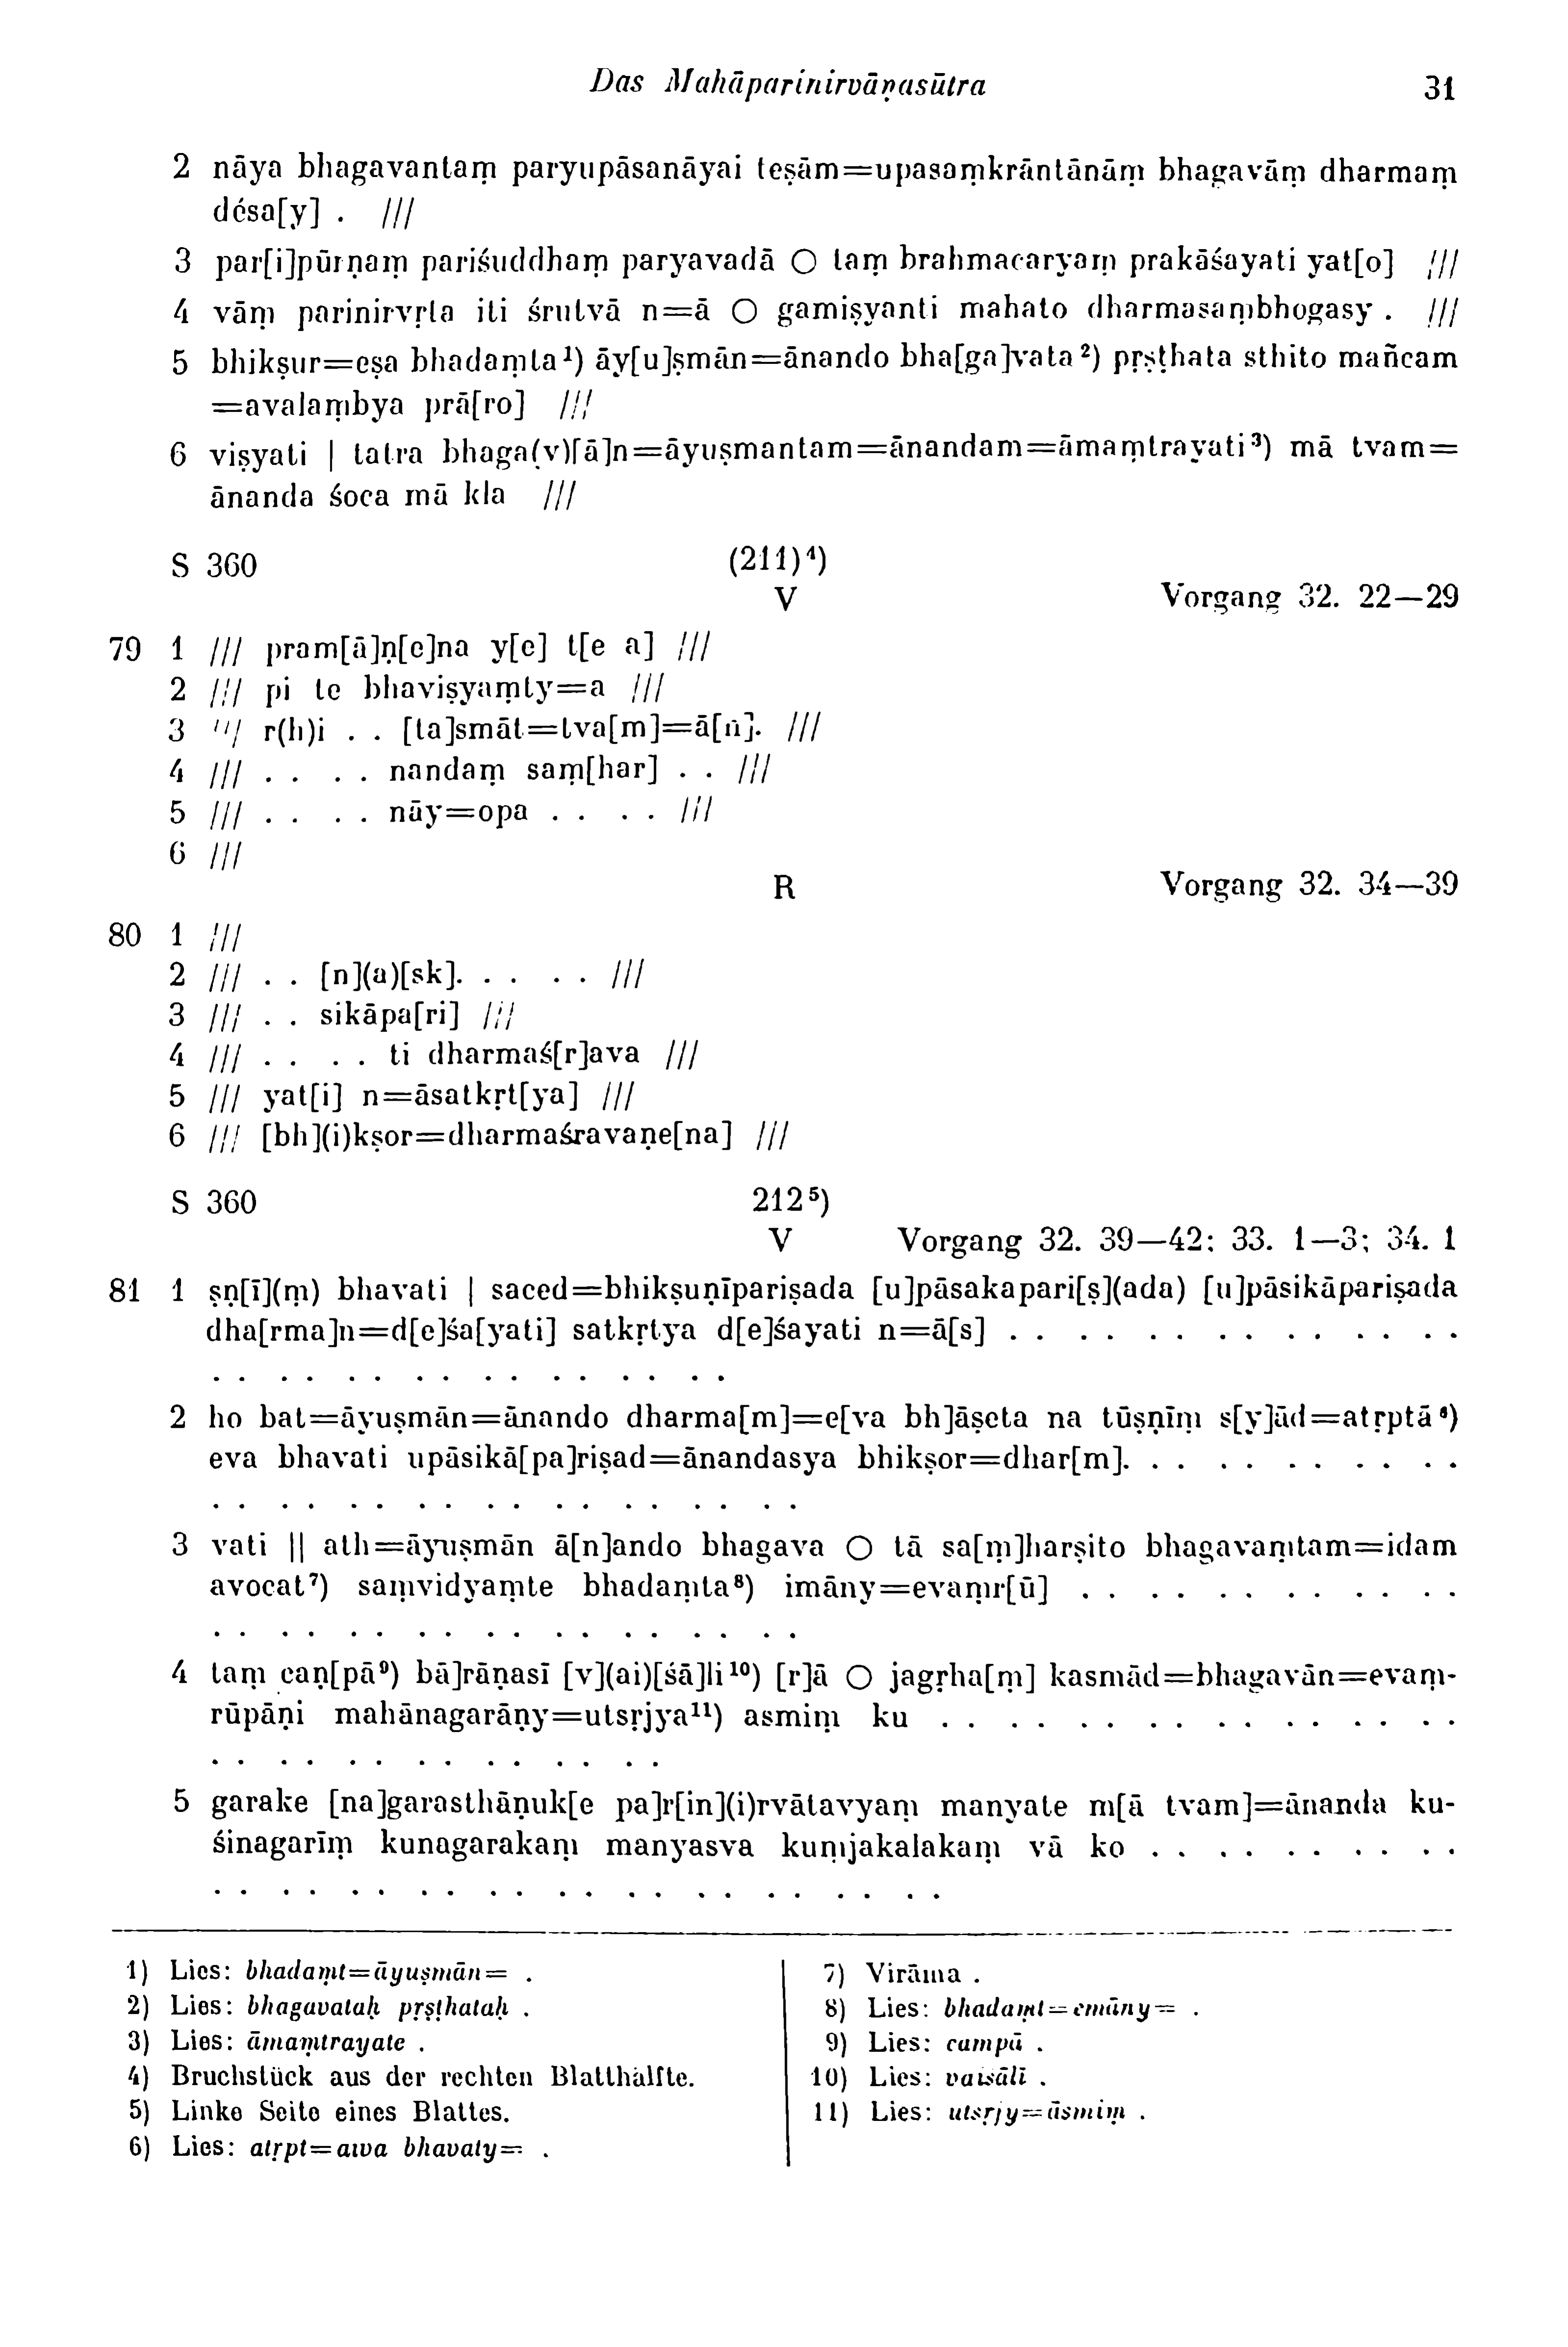 Das Mahāparinirvāṇasūtra 31
2 nāya bhagavantaṃ paryupāsanāyai teṣām=upasaṃkrāntānāṃ bhagavāṃ dharmaṃ
déśa[y] . ///
3 par[i]pūrṇaṃ pariśuddhaṃ paryavadā ○ taṃ brahmacaryaṃ prakāśayati yat[o] ///
4 vāṃ parinirvṛta iti śrutvā n=ā ○ gamiṣyanti mahato dharmasaṃbhogasy . ///
5 bhikṣur=eṣa bhadaṃta¹) āy[u]ṣmān=ānando bha[ga]vata²) pṛṣṭhata sthito mañcam
=avalaṃbya prā[ro] ///
6 viṣyati | tatra bhaga(v)[ā]n=āyuṣmantam=ānandam=āmaṃtrayati³) mā tvam=
ānanda śoca mā kla ///
S 360 (211)⁴)
V Vorgang 32. 22—29
79 1 /// pram[ā]ṇ[e]na y[e] t[e a] ///
2 /// pi te bhaviṣyaṃty=a ///
3 /// r(h)i . . [ta]smāt=tva[m]=ā[n]. ///
4 /// . . . . nandaṃ saṃ[har] . . ///
5 /// . . . . nāy=opa . . . . ///
6 ///
R Vorgang 32. 34—39
80 1 ///
2 /// . . [n](a)[sk]. . . . . ///
3 /// . . sikāpa[ri] ///
4 /// . . . . ti dharmaś[r]ava ///
5 /// yat[i] n=āsatkṛt[ya] ///
6 /// [bh](i)kṣor=dharmaśravaṇe[na] ///
S 360 212⁵)
V Vorgang 32. 39—42; 33. 1—3; 34. 1
81 1 ṣṇ[ī](ṃ) bhavati | saced=bhikṣuṇīpariṣada [u]pāsakapari[ṣ](ada) [u]pāsikāpariṣada
dha[rma]n=d[e]śa[yati] satkṛtya d[e]śayati n=ā[s] . . . . . . . . . . . . . .
. . . . . . . . . . . . . . . .
2 ho bat=āyuṣmān=ānando dharma[m]=e[va bh]āṣeta na tūṣṇīṃ s[y]ād=atṛptā⁶)
eva bhavati upāsikā[pa]riṣad=ānandasya bhikṣor=dhar[m]. . . . . . . . . . .
. . . . . . . . . . . . . . . . . .
3 vati || ath=āyuṣmān ā[n]ando bhagava ○ tā sa[ṃ]harṣito bhagavaṃtam=idam
avocat⁷) saṃvidyaṃte bhadaṃta⁸) imāny=evaṃr[ū] . . . . . . . . . . . .
. . . . . . . . . . . . . . . . . .
4 taṃ caṇ[pā⁹) bā]rāṇasī [v](ai)[śā]li¹⁰) [r]ā ○ jagṛha[ṃ] kasmād=bhagavān=evaṃ-
rūpāṇi mahānagarāṇy=utsṛjya¹¹) asmiṃ ku . . . . . . . . . . . . . . . .
. . . . . . . . . . . . . .
5 garake [na]garasthāṇuk[e pa]r[in](i)rvātavyaṃ manyate m[ā tvam]=ānanda ku-
śinagarīṃ kunagarakaṃ manyasva kuṃjakalakaṃ vā ko . . . . . . . . . .
. . . . . . . . . . . . . . . . . . . . . .
1) Lies: bhadaṃt=āyuṣmān= .
2) Lies: bhagavataḥ pṛṣṭhataḥ .
3) Lies: āmaṃtrayate .
4) Bruchstück aus der rechten Blatthälfte.
5) Linke Seite eines Blattes.
6) Lies: atṛpt=aiva bhavaty= .
7) Virāma .
8) Lies: bhadaṃt=emāny= .
9) Lies: campā .
10) Lies: vaiśālī .
11) Lies: utsṛjy=āsmiṃ .